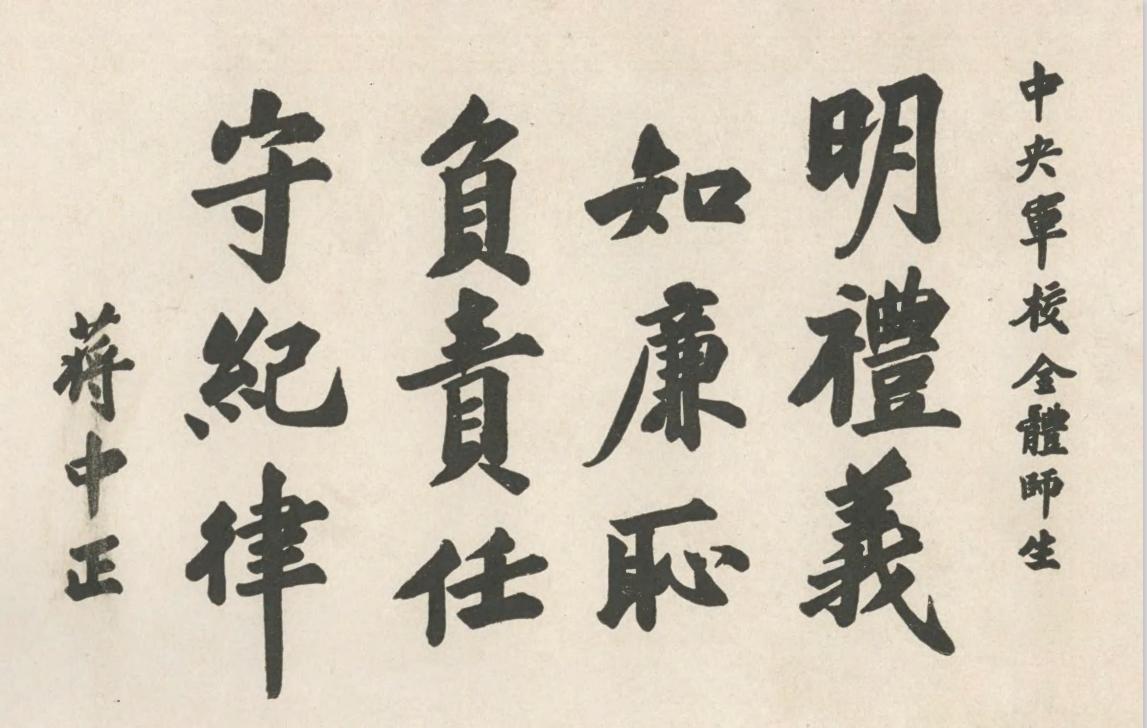 中央軍校全體師生
明禮義
知廉恥
負責任
守紀律
蔣中正